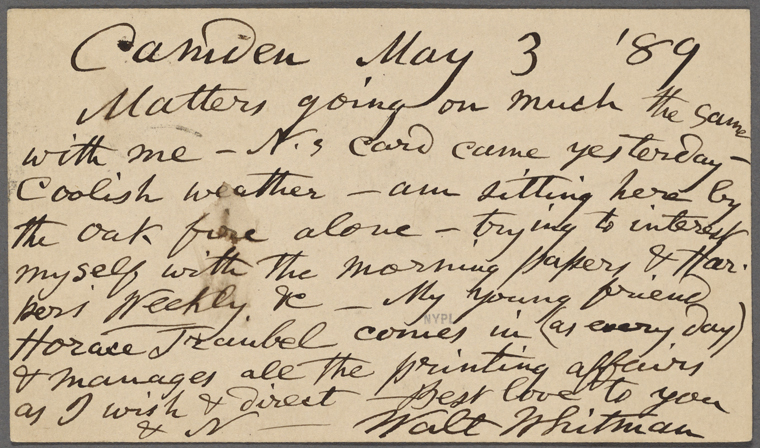 Camden May 3 '89
Matters going on much the same
with me – N.s card came yesterday –
Coolish weather – am sitting here by
the oak fire alone – trying to interest
myself with the morning papers & Har-
pers Weekly &c – My young friend
NYPL
Horace Traubel comes in (as every day)
& manages all the printing affairs
as I wish & direct – Best love to you
& N – Walt Whitman